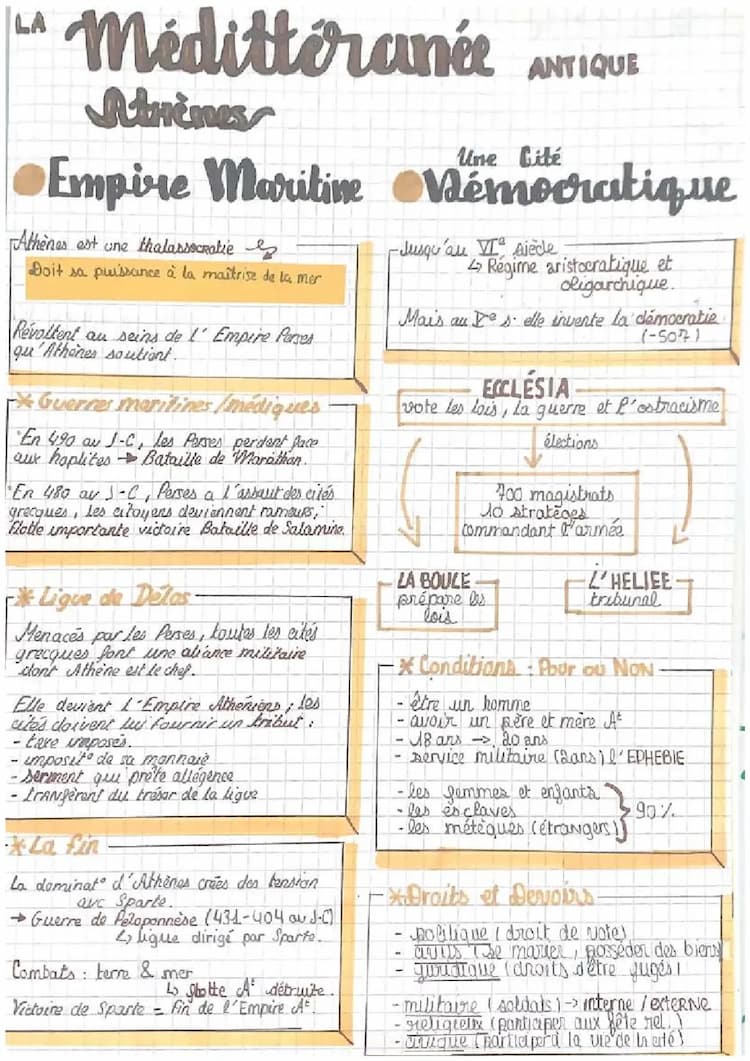 LA Méditterranée ANTIQUE
Athènes
Empire Maritine
Athènes est une thalassocratie
Doit sa puissance à la maîtrise de la mer
Révoltent au seins de l'Empire Perses
qu'Athènes soutient.
* Guerres maritines / médiques
En 490 av J-C, les Perses perdent face
aux hoplites → Bataille de Marathon.
En 480 av J-C, Perses a l'assaut des cités
grecques, les citoyens deviennent rameurs,
flotte importante victoire Bataille de Salamine.
* Ligue de Délos
Menacés par les Perses, toutes les cités
grecques font une aliance militaire
dont Athène est le chef.
Elle devient l'Empire Athéniens; les
cités doivent lui fournir un tribut :
- taxe imposés.
- imposit° de sa monnaie
- serment qui prête allégence
- transfèrent du trésor de la ligue
* La fin
La dominat° d'Athènes crées des tension
avc Sparte.
→ Guerre de Péloponnèse (431-404 av J-C)
↳ ligue dirigé par Sparte.
Combats : terre & mer
↳ flotte At détruite.
Victoire de Sparte = fin de l'Empire At.
Une Cité
Démocratique
Jusqu'au VIe siècle
↳ Régime aristocratique et
oligarchique.
Mais au Ve s. elle invente la démocratie
(-507)
ECCLÉSIA
vote les lois, la guerre et l'ostracisme
élections
700 magistrats
10 stratèges
commandant l'armée
LA BOULE
prépare les
lois
L'HELIEE
tribunal
* Conditions : Pour ou Non
- être un homme
- avoir un père et mère At
- 18 ans → 20 ans
- service militaire (2ans) l'EPHEBIE
- les femmes et enfants
- les esclaves
- les métèques (étranger)
90%
* Droits et Devoirs
- politique (droit de votes)
- civils (se marier, posséder des biens)
- juridique (droits d'être jugés)
- militaire (soldats) → interne / EXTERNE
- religieux (participer aux fête rel.)
- civique (participer à la vie de la cité)